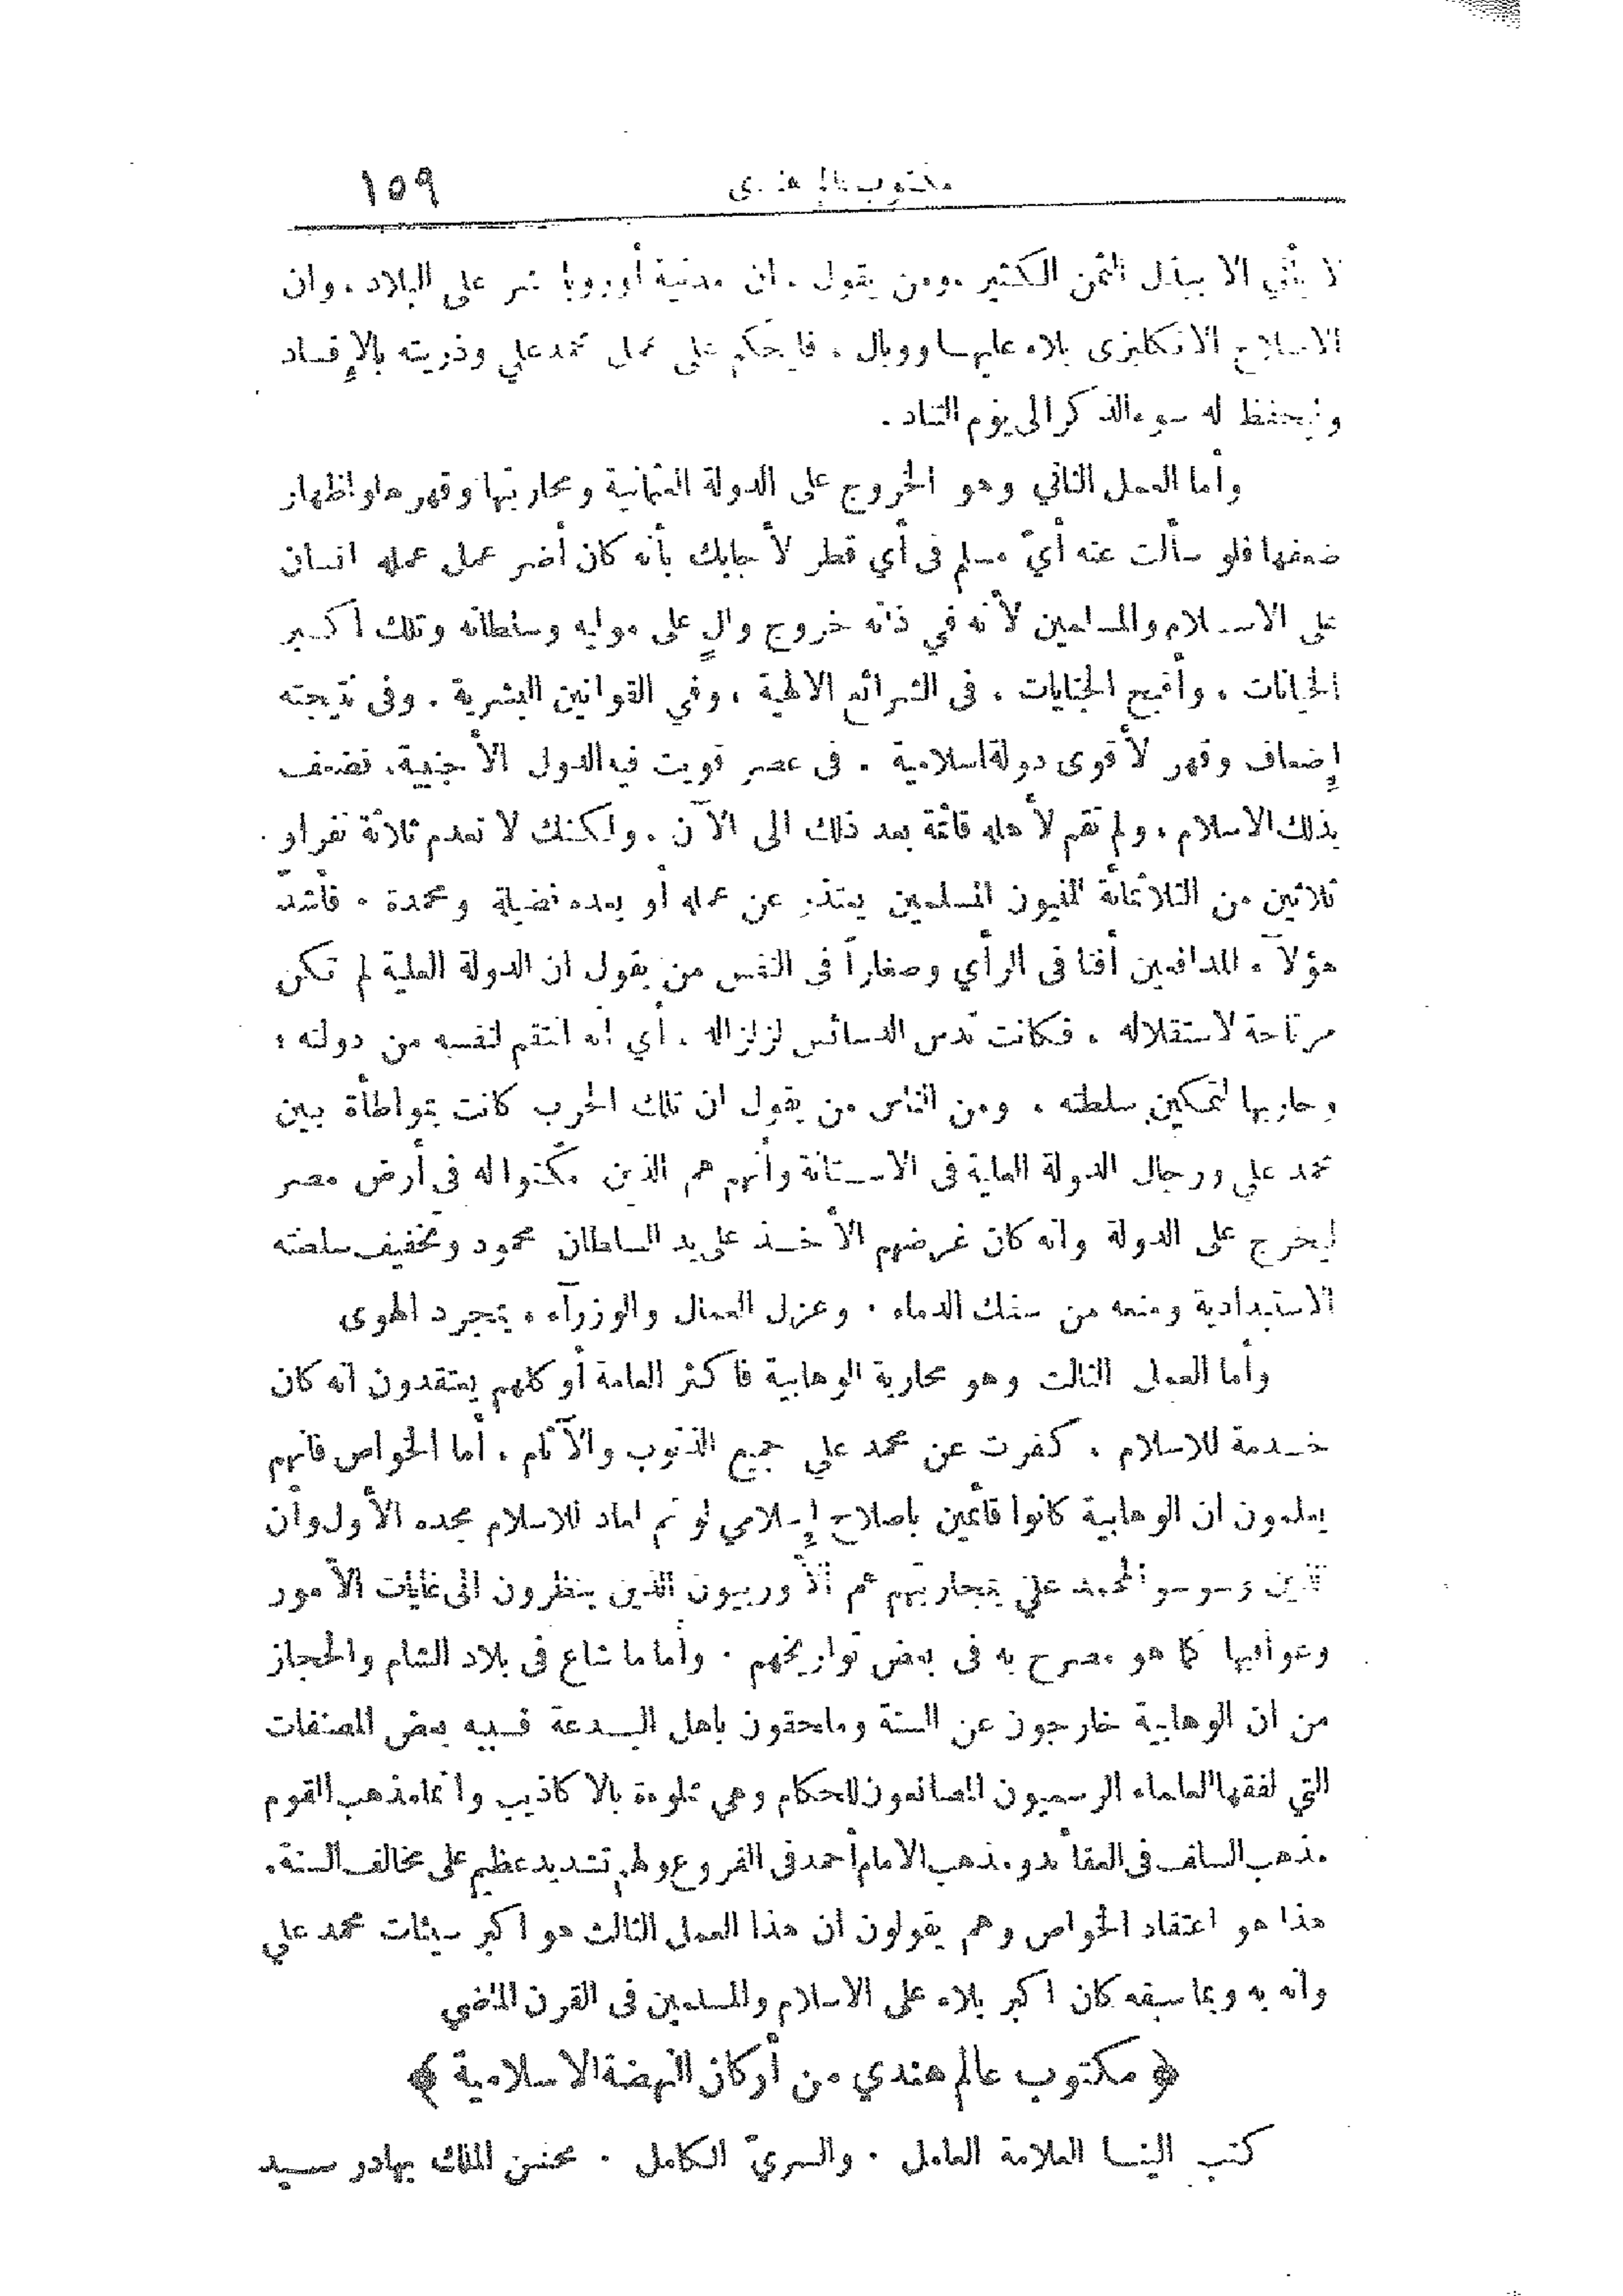 مكتوب عالم هندي ١٥٩
لا يأتي الا ببذل الثمن الكثير . ومن يقول . ان مدنية أوروبا شر على البلاد . وان
الاصلاح الانكليزى بلاء عليها ووبال . فليحكم على عمل محمد علي وذريته بالإفساد
وليحفظ له سوء الذكر الى يوم التناد .
وأما العمل الثاني وهو الخروج على الدولة العثمانية ومحاربتها وقهرها واظهار
ضعفها فلو سألت عنه أيّ مسلم فى أي قطر لأجابك بأنه كان أضر عمل عمله انسان
على الاسلام والمسلمين لأنه في ذاته خروج والٍ على موليه وسلطانه وتلك أكبر
الخيانات ، وأقبح الجنايات ، فى الشرائع الالهية ، وفي القوانين البشرية . وفى نتيجته
إضعاف وقهر لأقوى دولة اسلامية . فى عصر قويت فيه الدول الأجنبية . فضعف
بذلك الاسلام ، ولم تقم لأهله قائمة بعد ذلك الى الآن . ولكنك لا تعدم ثلاثة نفر او
ثلاثين من الثلاثمائة المليون المسلمين يعتذر عن عمله أو يعده فضيلة ومحمدة . فأشد
هؤلآء المدافعين أفنا فى الرأي وصغاراً فى النفس من يقول ان الدولة العلية لم تكن
مرتاحة لاستقلاله ، فكانت تدس الدسائس لزلزاله . أي انه انتقم لنفسه من دولته ؛
وحاربها لتمكين سلطته . ومن الناس من يقول ان تلك الحرب كانت بتواطأة بين
محمد علي ورجال الدولة العلية فى الاستانة وأنهم هم الذين مكنوا له فى أرض مصر
ليخرج على الدولة وانه كان غرضهم الأخذ على يد السلطان محمود وتخفيف سلطته
الاستبدادية ومنعه من سفك الدماء . وعزل العمال والوزرآء . بمجرد الهوى
وأما العمل الثالث وهو محاربة الوهابية فاكثر العامة أو كلهم يعتقدون انه كان
خدمة للاسلام . كفرت عن محمد علي جميع الذنوب والآثام . أما الخواص فانهم
يعلمون ان الوهابية كانوا قائمين باصلاح إسلامي لو تم لعاد للاسلام مجده الأول وان
الذين وسوسوا لمحمد علي بمحاربتهم هم الأوربيون الذين ينظرون الى غايات الأمور
وعواقبها كما هو مصرح به فى بعض تواريخهم . وأما ما شاع فى بلاد الشام والحجاز
من ان الوهابية خارجون عن السنة وملحقون باهل البدعة فسببه بعض المصنفات
التي لفقها العلماء الرسميون المصانعون للحكام وهي مملوءة بالاكاذيب وانما مذهب القوم
مذهب السلف فى العقائد ومذهب الامام أحمد فى الفروع ولهم تشديد عظيم على مخالف السنة .
هذا هو اعتقاد الخواص وهم يقولون ان هذا العمل الثالث هو اكبر سيئات محمد علي
وانه به وبما سبقه كان اكبر بلاء على الاسلام والمسلمين فى القرن الماضي
﴿ مكتوب عالم هندي من أركان النهضة الاسلامية ﴾
كتب الينا العلامة العامل . والسريّ الكامل . محسن الملك بهادر سيد